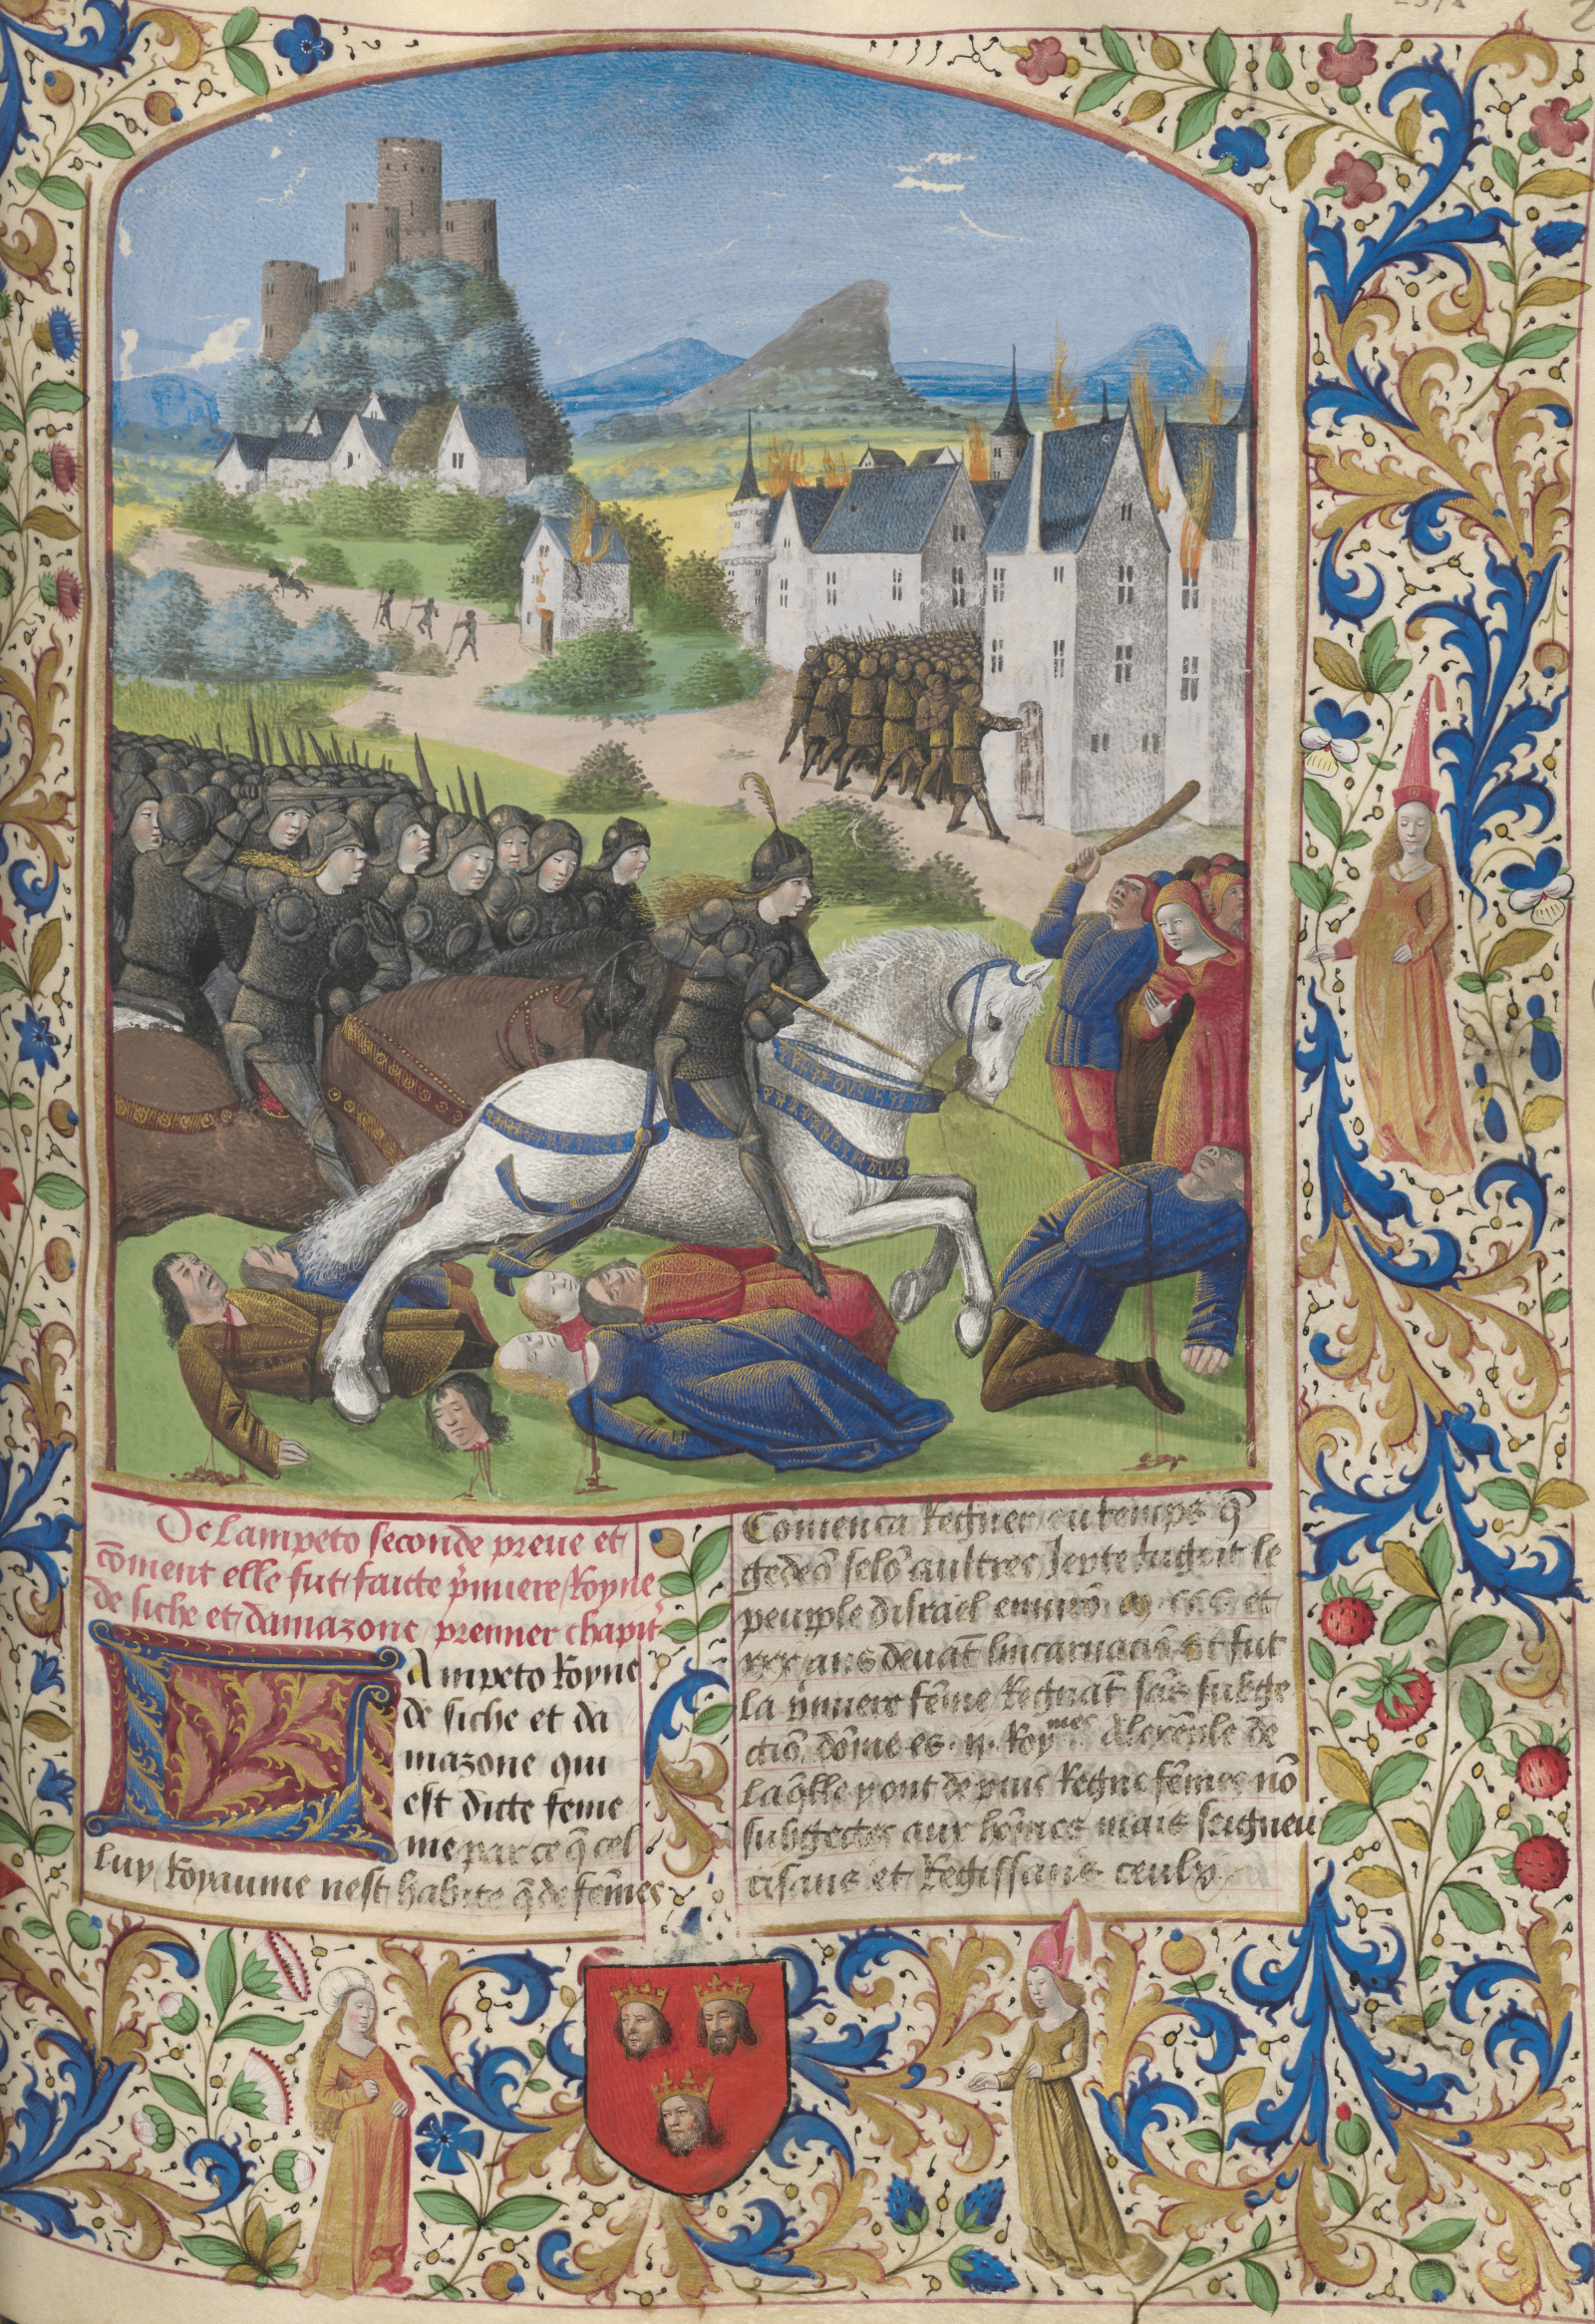 De lampeto seconde preue et
cōment elle fut faicte p̄miere Royne
de siche et damazone premier chapit̄
Ampeto Royne
de siche et da
mazone qui
est dicte feme
nie par ce q̄ cel
luy Royaume nest habite q̄ de fēmes
Comenca Regner eu temps q̄
gedeō selō aultres Jepte Jugoit le
peuple disrael enuirō et
xxx ans deuāt lincarnaciō Et fut
la p̄miere fēme Regnāt sās subge
ctiō dōme es .ij. Roymes A lexēple de
laq̄lle y ont depuis Regne fēmes nō
subgectes aux hōmes mais seigneu
risans et Regissans ceulx